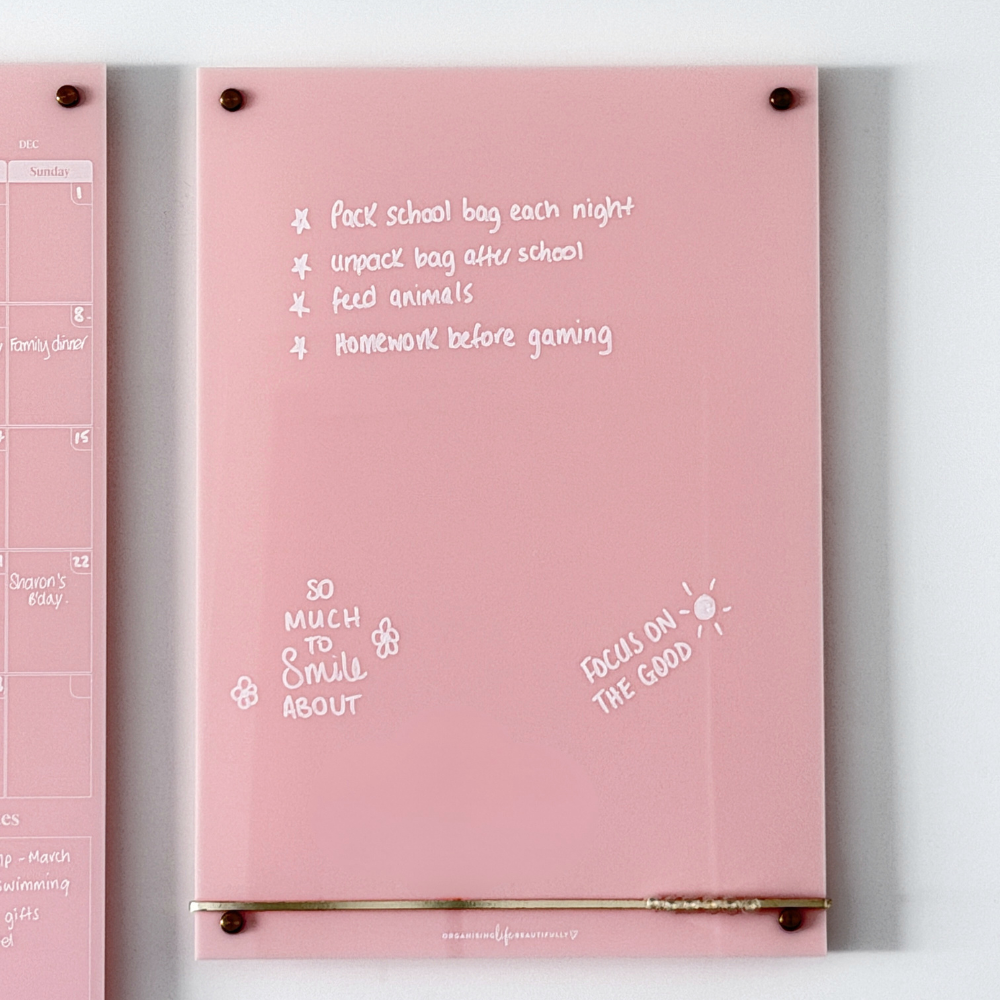 DEC
Sunday
1
8
Family dinner
15
22
Sharon's
B'day.
es
- March
swimming
gifts
Pack school bag each night
unpack bag after school
feed animals
Homework before gaming
SO
MUCH
TO
Smile
ABOUT
FOCUS ON
THE GOOD
ORGANISING life BEAUTIFULLY